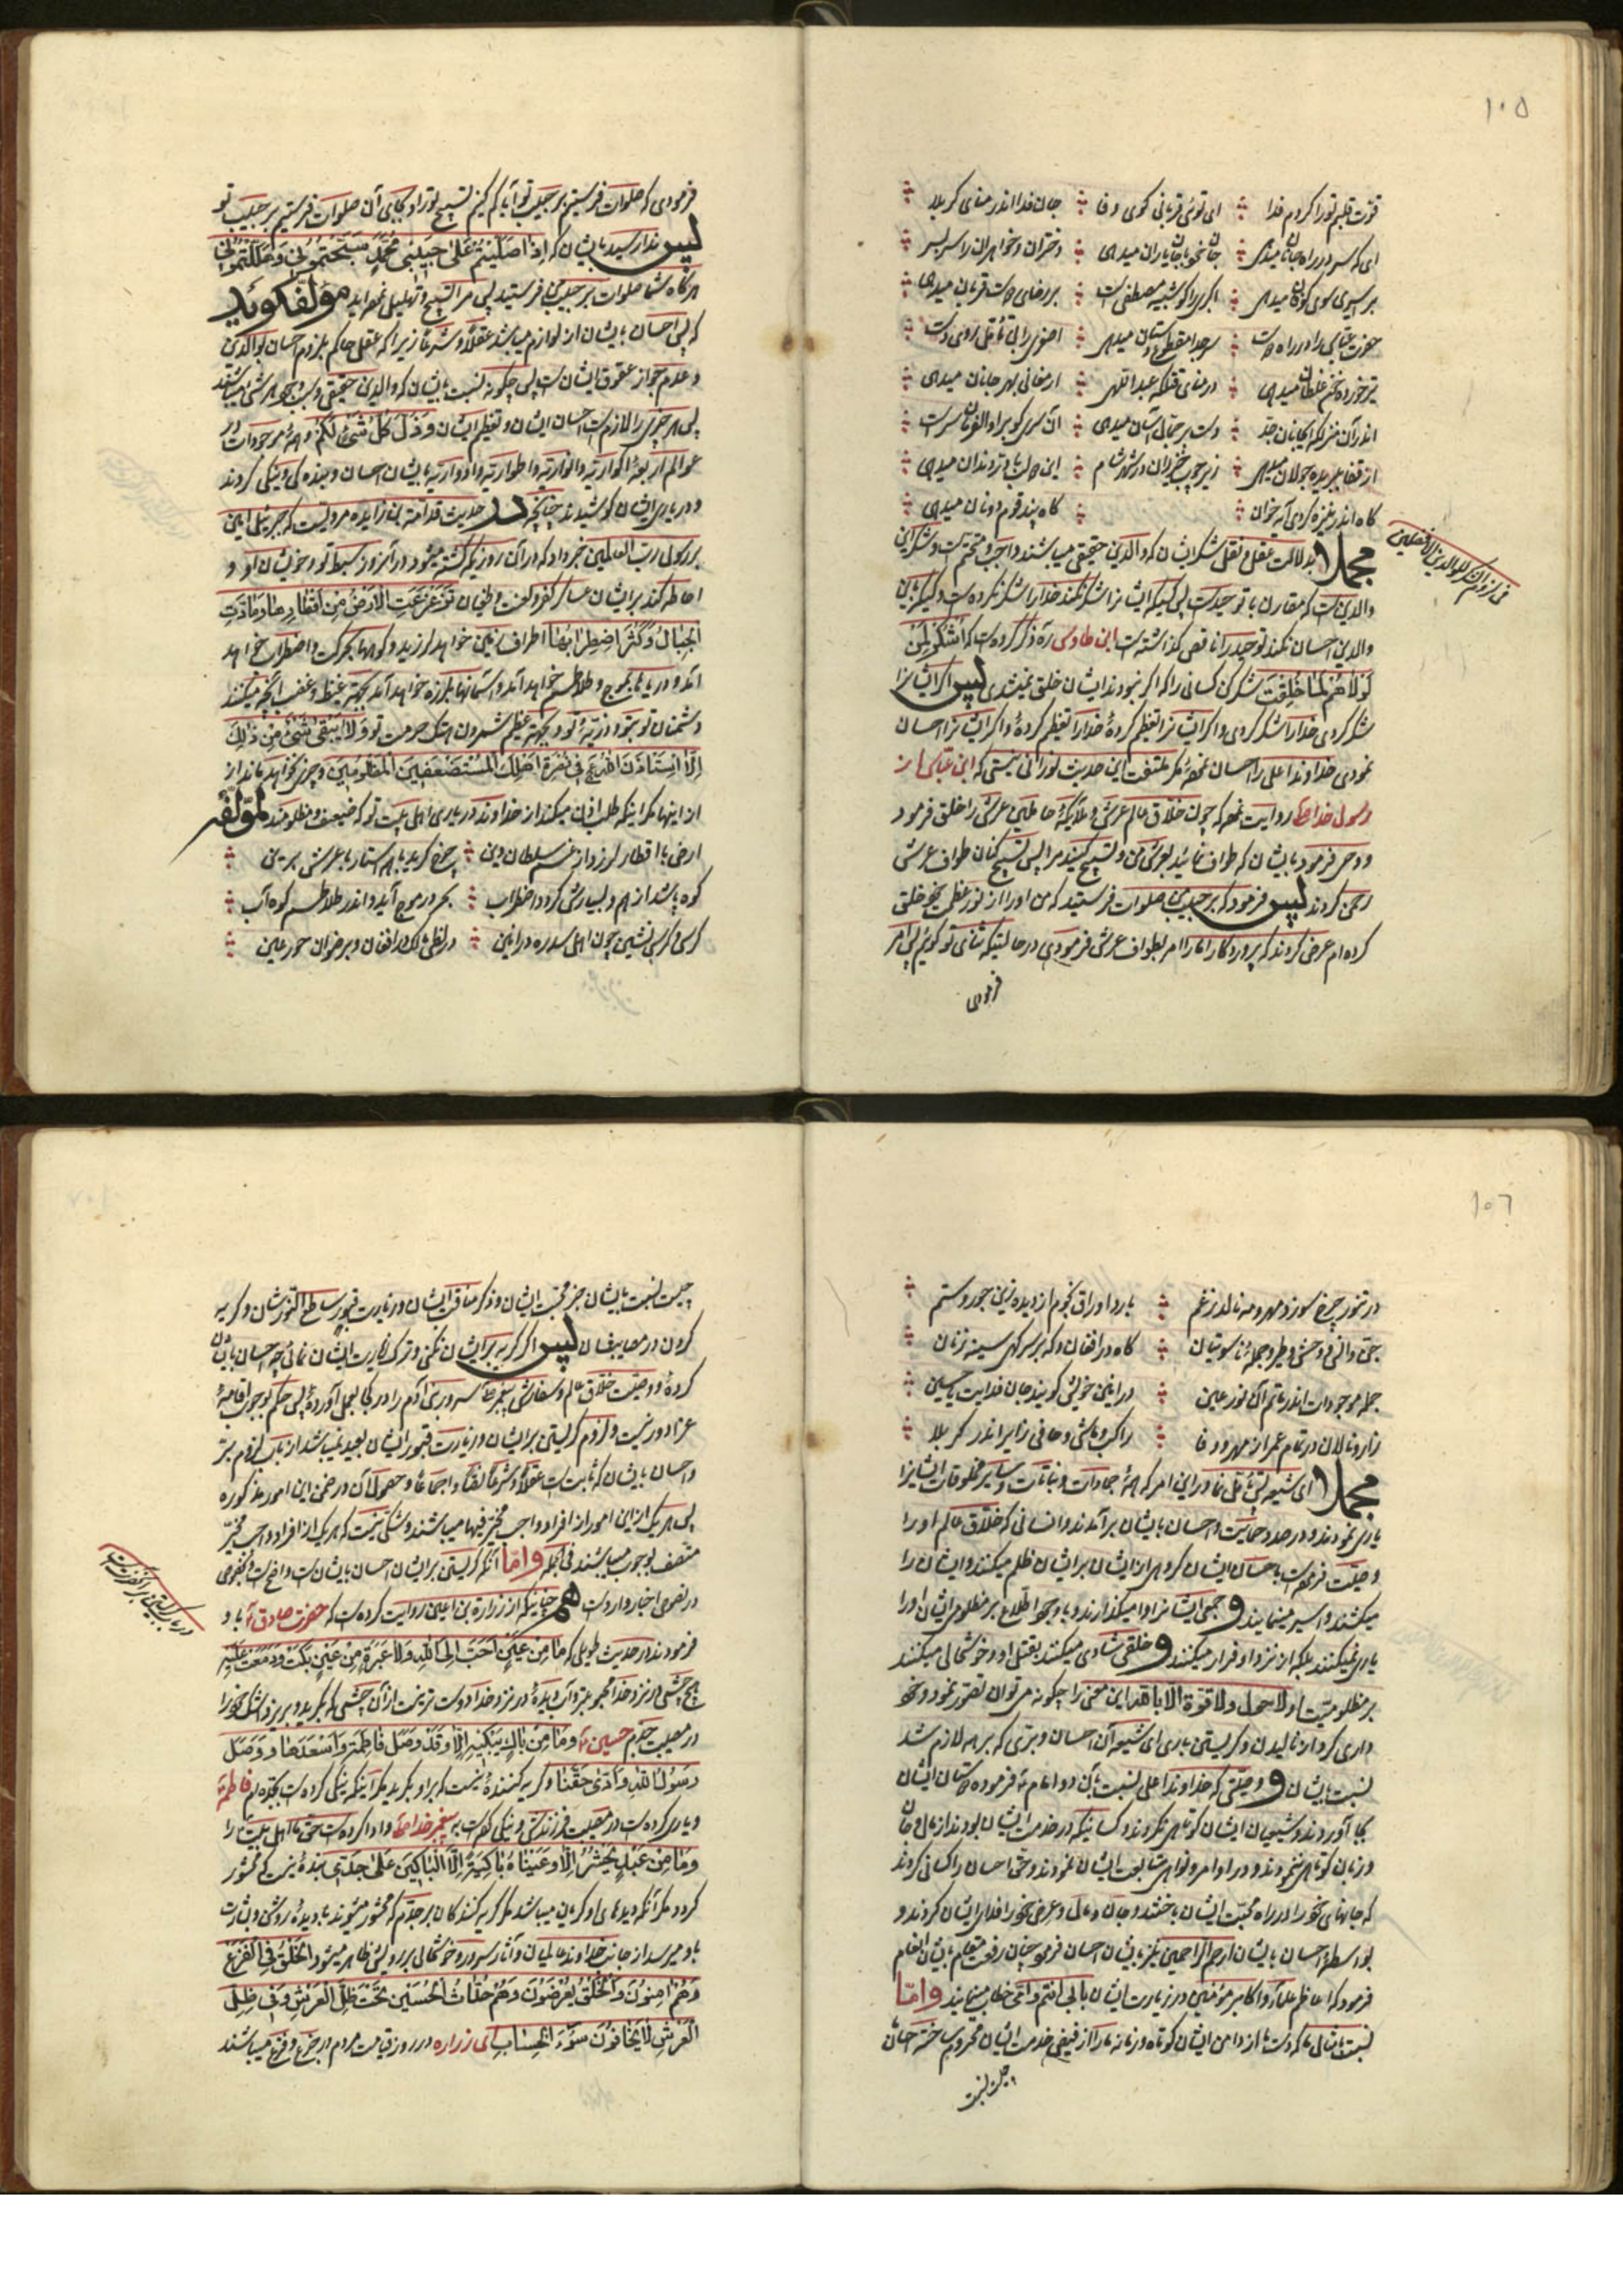 ۱۰۵
قوت قلبم تو را کردم فدا ای توئی قربانی کوی وفا جان فدا اندر منای کربلا
ای که سر در راه جانان میدهی جان خود با جان یاران میدهی دختران و خواهران را سر بسر
بر اسیری سوی کوفان میدهی اکبری را کو شبیه مصطفی است بر رضای دوست قربان میدهی
حضرت عباس را در راه دوست سر جدا مقطوع دستان میدهی اصغری را بی تأمل روی دست
تیر خورده زخم غلطان میدهی در منای قتلگه عبداللهی ارمغانی بهر جانان میدهی
اندر آن منزلگه دست بر جمال آسان میدهی آن سری کو براو سر است
از قفا ببریده جولان میدهی زیر چوب خیزران در شهر شام این لب و دندان میدهی
گاه اندر نیزه کردی آیه خوان گاه پند قوم دونان میدهی
مجملا بدلالت عقل و نقل شکر ایشان که والدین حقیقی میباشند واجب و متحتم است و شکر این
در لزوم شکر للوالدین
والدین است که مقارن با توحید است پس کسیکه ایشانرا شکر نکند خدا را شکر نکرده است و کسیکه باین
والدین احسان نکند توحید را ناقص گذاشته است ابن طاوس ره ذکر کرده است که اشکر لمن
لولاهم لما خلقت شکر کن کسانی را که اگر نبودند ایشان خلق نمیشدی پس اگر ایشانرا
شکر کردی خدا را شکر کردی و اگر ایشانرا تعظیم کردهٔ خدا را تعظیم کردهٔ و اگر ایشانرا احسان
نمودی خداوند اعلی را احسان نمودهٔ مگر ملتفت این حدیث نورانی نیستی که ابن عباس از
رسول خدا ص روایت نموده که چون خلاق عالم عرش و ملائکهٔ حاملین عرش را خلق فرمود
و وحی فرمود بایشان که طواف نمائید بعرش من و تسبیح کنید مرا پس تسبیح کنان طواف عرش
رحمن کردند پس فرمود که بر حبیب من صلوات فرستید که من او را از نور عظمت خود خلق
کرده ام عرض کردند که پروردگارا ما را امر بطواف عرش فرمودی در حالتیکه ثنای تو گوئیم پس امر
فرمودی
فرمودی که صلوات فرستیم بر حبیب تو آیا کم کنیم تسبیح تو را و بجای آن صلوات فرستیم بر حبیب تو
پس ندا رسید بایشان که اذا صلیتم علی حبیبی محمد سبحتمونی و هللتمونی
هرگاه شما صلوات بر حبیب من فرستید پس مرا تسبیح و تهلیل نموده اید مؤلف گوید
که پس احسان بایشان از لوازم میباشد عقلا و شرعا زیرا که عقل حاکم بلزوم احسان لوالدین
و عدم جواز عقوق ایشان است پس چگونه نسبت بایشان که والدین حقیقی و سبب وجود هر شئ میباشند
پس هر چیزی را لازم است احسان ایشان و تعظیم ایشان و ذل کل شئ لکم و همهٔ موجودات در
عوالم اربعهٔ اکواریه و انواریه و اطواریه و ادواریه بایشان احسان و بندگی و نیکی کردند
و در یاری ایشان کوشیدند چنانچه در حدیث قدامة بن زائده مرویست که جبرئیل امین
برسول رب العالمین خبر داد که در آن روزیکه کشته میشود در آنروز سبط تو و خویشان او و
احاطه کند بر ایشان عساکر کفر و لعنت و طغیان تزعزعت الارض من اقطارها و مادت
الجبال و کثر اضطرابها اطراف زمین خواهد لرزید و کوهها بحرکت و اضطراب خواهد
آمد و دریاها بموج و تلاطم خواهد آمد و آسمانها بلرزه خواهد آمد بجهة غیظ و غضب آنچه میکنند
دشمنان تو بتو و ذریهٔ تو و بجهة عظیم شمردن هتک حرمت تو و لا یبقی شئ من ذلک
الا استاذن الله ع في نصرة اهلک المستضعفین المظلومین و چیزی نخواهد ماند از
از اینها مگر اینکه طلب اذن میکند از خداوند در یاری اهل بیت تو که ضعیف و مظلومند لمؤلفه
ارض با اقطار لرزد از غم سلطان دین چرخ گرید با هم ستار با عرش برین
کوه پاشد از هم و بسیار شد گرد و اضطراب بحر در موج آید و اندر طلاطم کوه آب
کرسی و کرسی نشین چون اهل سدره در انین در افغان و بر خوان حور عین
۱۰٦
در تنور چرخ سوزد مهر و مه نالد ز غم بارد اوراق نجوم از دیده زین جور و ستم
جن و انس و وحش و طیر و جملهٔ ناسوتیان گاه در افغان و گه بر سر گهی سینه زنان
جمله موجودات اندر ماتم آن نور عین در انین خویش گویند جان فدایت یا حسین
زار و نالان در تمام عمر از مهر و وفا راکب و ماشی و حافی زایر اندر کربلا
مجملا ای شیعه نیک تأمل نما در این امر که همهٔ جمادات و نباتات و سایر مخلوقات ایشانرا
یاری نمودند و در صدد حمایت و احسان بایشان بر آمدند و انسانی که خلاق عالم او را
وصیت فرموده است باحسان ایشان گروهی از ایشان بر ایشان ظلم میکنند و ایشان را
میکشند و اسیر مینمایند و جمعی ایشانرا وا میگذارند و با وجود اطلاع بر مظلومی ایشان او را
یاری نمیکنند بلکه از نزد او فرار میکنند و خلقی شادی میکنند بقتل او و خوشحالی میکنند
بر مظلومیت او لا حول و لا قوة الا بالله این محن را چگونه می توان تصور نمود و خود
داری کرد از نالیدن و گریستن باری ای شیعه آن احسان و بری که بر همه لازم شد
نسبت بایشان و وصیتی که خداوند اعلی نسبت بآن دو امام ع فرموده دوستان ایشان
بجا آوردند و شیعیان ایشان کوتاهی نکردند و کسانیکه در خدمت ایشان بودند از مال و جان
و زبان کوتاهی ننمودند و در اوامر و نواهی متابعت ایشان نمودند و حق احسان را کسانی کردند
که جانهای خود را در راه محبت ایشان باختند و جان و مال و عرض خود را فدای ایشان کردند و
بواسطهٔ احسان بایشان ارحم الراحمین نیز بایشان احسان فرمود چنان رفعت مقام بایشان انعام
فرمود که اعاظم علما و اکابر مؤمنین در زیارت ایشان بابی انتم و امی خطاب مینمایند و اما
نسبت بامثال ما که دست ما از دامن ایشان کوتاه و زمانه ما را از فیض خدمت ایشان محروم ساخته احسان
چیست نسبت
چیست نسبت بایشان جز محبت ایشان و ذکر مناقب ایشان و زیارت قبور ساطع النورشان و گریه
کردن در مصایبشان پس اگر گریه بر ایشان نکنی و ترک زیارت ایشان نمائی چه احسان بایشان
کردهٔ و وصیت خلاق عالم و سفارش پیغمبر ص سرور بنی آدم را در کجا بعمل آوردهٔ پس حکم بوجوب اقامهٔ
عزا دور نیست و لزوم گریستن بر ایشان و زیارت قبور ایشان بعید نمیباشد از باب لزوم بر
و احسان بایشان که ثابت است عقلا و شرعا نصا و اجماعا و حصول آن در ضمن این امور مذکوره
پس هر یک از این امور از افراد واجب مخیر فیها میباشند و شکی نیست که هر یک از افراد واجب مخیر
متصف بوجوب میباشند في الجمله و اما آنکه گریستن بر ایشان احسان بایشان است واضح است و بخصوص
در خصوص اخبار وارد است هم چنانیکه از زرارة بن اعین روایت کرده است که حضرت صادق ع باو
فرمودند در حدیث طویلی که ما من عین احب الی الله و لا عبرة من عین بکت و دمعت علیه
هیچ چشمی در نزد خدا محبوبتر و آب دیدهٔ در نزد خدا دوست تر نیست از آن چشمی که بگرید و بریزد اشک خود را
در مصیبت جدم حسین ع و ما من باک یبکیه الا و قد وصل فاطمة و اسعدها و وصل
رسول الله و ادی حقنا و گریه کنندهٔ نیست که بر او بگرید مگر اینکه نیکی کرده است بجده ام فاطمه
و یاری کرده است در مصیبت فرزندش و نیکی کرده است به پیغمبر خدا ص و ادا کرده است حق ما اهل بیت را
و ما من عبد یحشر الا و عیناه باکیة الا الباکین علی جدی بندهٔ نیست که محشور
گردد مگر آنکه دیدهای او گریان میباشد مگر گریه کنندگان بر جدم که محشور میشوند با دیدهٔ روشن و بشارت
باو میرسد از جانب خداوند عالمیان و آثار سرور و خوشحالی بر رویش ظاهر میشود الخلق في الفزع
و هم امنون و الخلق یعرضون و هم حداث الحسین تحت ظل العرش و في ظل
العرش لا یخافون سوء الحساب ای زراره در روز قیامت مردم در جزع و فزع میباشند